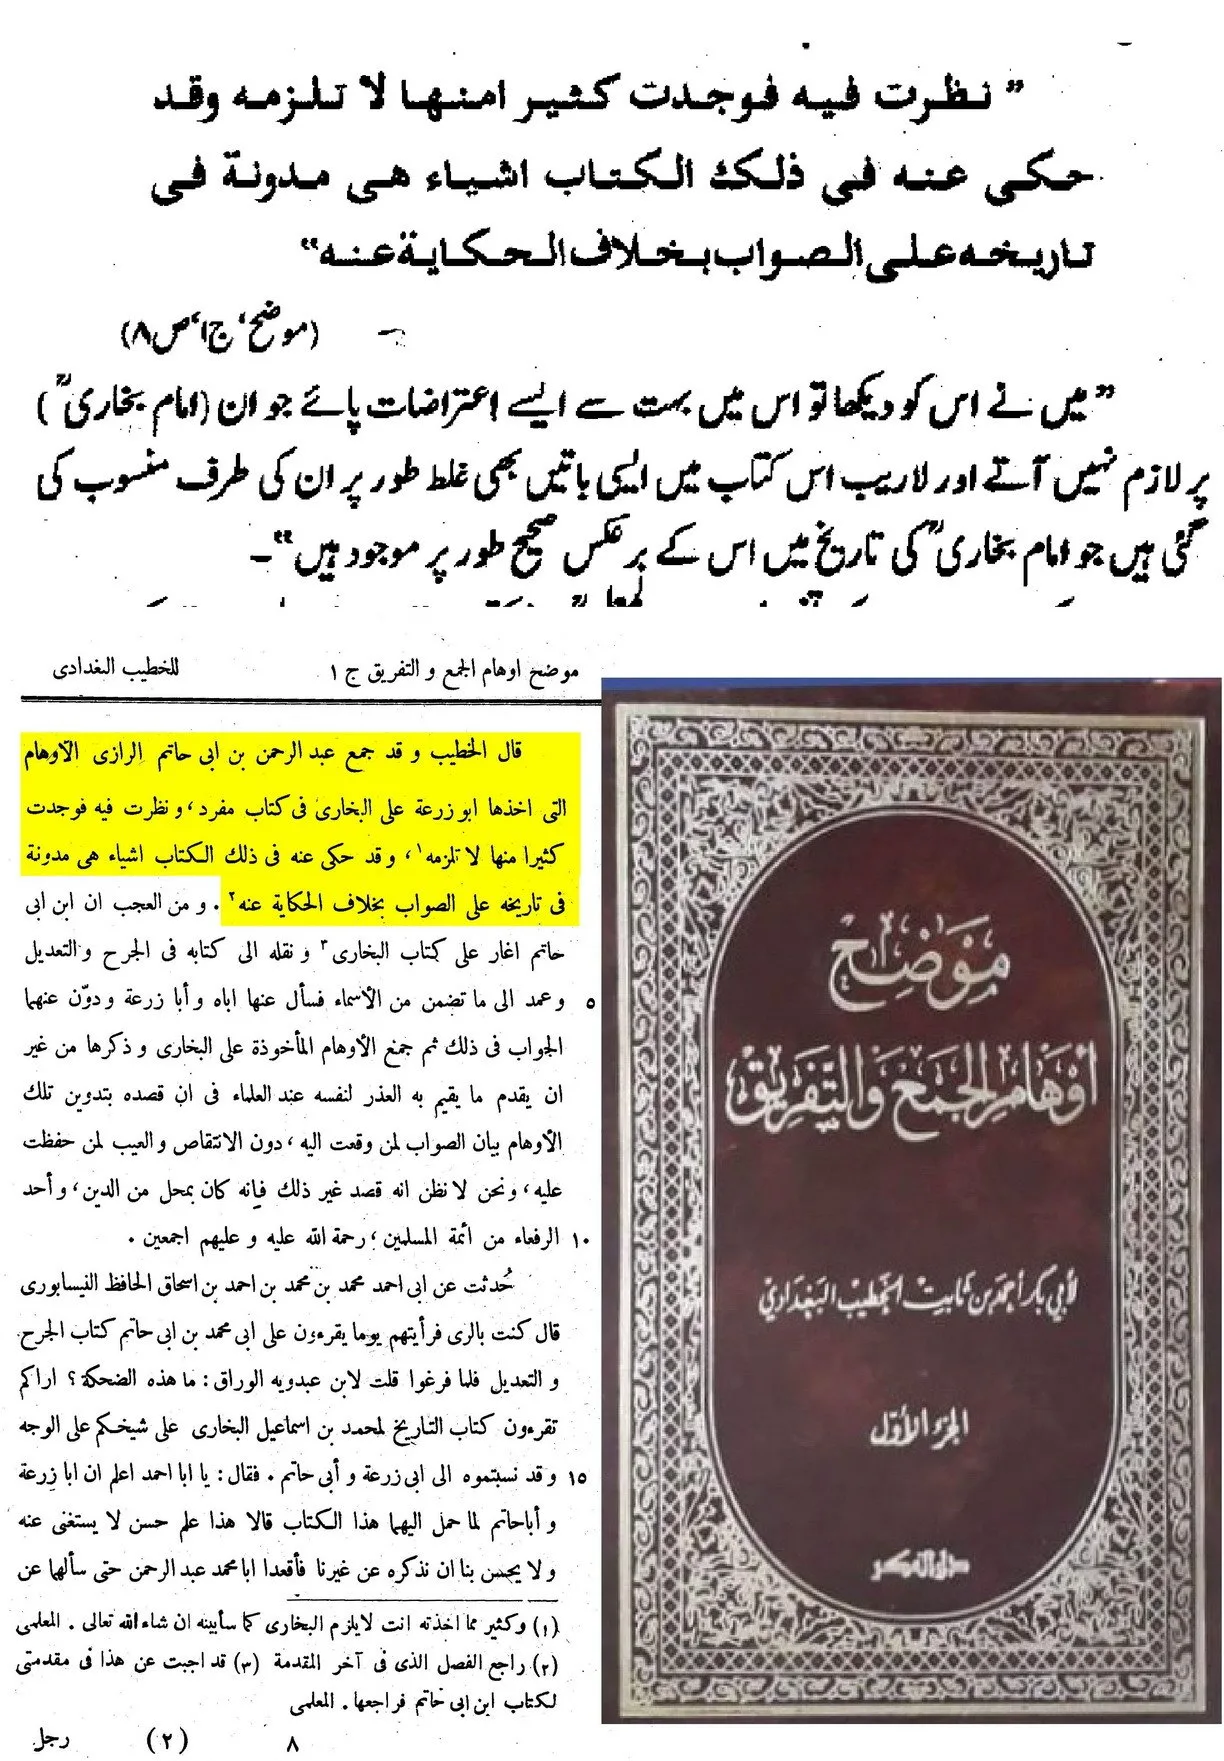 ” نظرت فیه فوجدت کثیر امنها لا تلزمه وقد
حکی عنه فی ذلک الکتاب اشیاء هی مدونة فی
تاریخه علی الصواب بخلاف الحکایة عنه“
(موضح، ج۱، ص۸)
”میں نے اس کو دیکھا تو اس میں بہت سے ایسے اعتراضات پائے جو ان (امام بخاریؒ)
پر لازم نہیں آتے اور لاریب اس کتاب میں ایسی باتیں بھی غلط طور پر ان کی طرف منسوب کی
گئی ہیں جو امام بخاریؒ کی تاریخ میں اس کے برعکس صحیح طور پر موجود ہیں“۔
موضح اوهام الجمع و التفريق ج ١ للخطيب البغدادى
قال الخطيب و قد جمع عبد الرحمن بن ابى حاتم الرازى الأوهام
التى اخذها ابو زرعة على البخارى فى كتاب مفرد، و نظرت فيه فوجدت
كثيرا منها لا تلزمه١، و قد حكى عنه فى ذلك الكتاب اشياء هى مدونة
فى تاريخه على الصواب بخلاف الحكاية عنه٢. و من العجب ان ابن ابى
حاتم اغار على كتاب البخارى٣ و نقله الى كتابه فى الجرح و التعديل
٥ و عمد الى ما تضمن من الأسماء فسأل عنها اباه و أبا زرعة و دوّن عنهما
الجواب فى ذلك ثم جمع الأوهام المأخوذة على البخارى و ذكرها من غير
ان يقدم ما يقيم به العذر لنفسه عند العلماء فى ان قصده بتدوين تلك
الأوهام بيان الصواب لمن وقعت اليه، دون الانتقاص و العيب لمن حفظت
عليه، و نحن لا نظن انه قصد غير ذلك فإنه كان بمحل من الدين، و أحد
١٠ الرفعاء من أئمة المسلمين، رحمة الله عليه و عليهم اجمعين.
حُدثت عن ابى احمد محمد بن محمد بن احمد بن اسحاق الحافظ النيسابورى
قال كنت بالرى فرأيتهم يوما يقرءون على ابى محمد بن ابى حاتم كتاب الجرح
و التعديل فلما فرغوا قلت لابن عبدويه الوراق: ما هذه الضحكة؟ اراكم
تقرءون كتاب التاريخ لمحمد بن اسماعيل البخارى على شيخكم على الوجه
١٥ و قد نسبتموه الى ابى زرعة و أبى حاتم. فقال: يا ابا احمد اعلم ان ابا زرعة
و أباحاتم لما حمل اليهما هذا الكتاب قالا هذا علم حسن لا يستغنى عنه
و لا يحسن بنا ان نذكره عن غيرنا فأقعدا ابا محمد عبد الرحمن حتى سألهما عن
(١) وكثير مما اخذته انت لايلزم البخارى كما سأبينه ان شاء الله تعالى. المعلمى
(٢) راجع الفصل الذى فى آخر المقدمة (٣) قد اجبت عن هذا فى مقدمتى
لكتاب ابن ابى حاتم فراجعها. المعلمى
٨ (٢) رجل
مُوَضِّح
أوهام الجمع والتفريق
لأبي بكر أحمد بن ثابت الخطيب البغدادي
الجزء الأول
دار الفكر